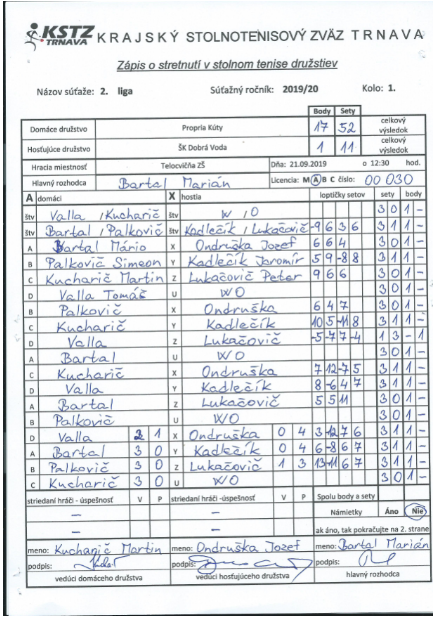 KSTZ TRNAVA KRAJSKÝ STOLNOTENISOVÝ ZVÄZ TRNAVA
Zápis o stretnutí v stolnom tenise družstiev
Názov súťaže: 2. liga Súťažný ročník: 2019/20 Kolo: 1.
Body Sety
Domáce družstvo Propria Kúty 17 52 celkový výsledok
Hosťujúce družstvo ŠK Dobrá Voda 1 11 celkový výsledok
Hracia miestnosť Telocvičňa ZŠ Dňa: 21.09.2019 o 12:30 hod.
Hlavný rozhodca Bartal Marián Licencia: M A B C číslo: 00 030
A domáci X hostia loptičky setov sety body
štv Valla / Kucharič štv W / O 3 0 1 -
štv Bartal / Palkovič štv Kadlečík / Lukačovič -9 6 3 6 3 1 1 -
A Bartal Mário X Ondruška Jozef 6 6 4 3 0 1 -
B Palkovič Simeon Y Kadlečík Jaromír 5 9 -8 8 3 1 1 -
C Kucharič Martin Z Lukačovič Peter 9 6 6 3 0 1 -
D Valla Tomáš U WO 3 0 1 -
B Palkovič X Ondruška 6 4 7 3 0 1 -
C Kucharič Y Kadlečík 10 5 -11 8 3 1 1 -
D Valla Z Lukačovič -5 -7 7 -4 1 3 - 1
A Bartal U WO 3 0 1 -
C Kucharič X Ondruška 7 12 -7 5 3 1 1 -
D Valla Y Kadlečík 8 -6 4 7 3 1 1 -
A Bartal Z Lukačovič 5 5 11 3 0 1 -
B Palkovič U WO 3 0 1 -
D Valla 2 1 X Ondruška 0 4 3 -12 7 6 3 1 1 -
A Bartal 3 0 Y Kadlečík 0 4 6 -8 6 7 3 1 1 -
B Palkovič 3 0 Z Lukačovič 1 3 13 -11 6 7 3 1 1 -
C Kucharič 3 0 U WO 3 0 1 -
striedaní hráči - úspešnosť V P striedaní hráči -úspešnosť V P Spolu body a sety
– – Námietky Áno Nie
– – ak áno, tak pokračujte na 2. strane
meno: Kucharič Martin meno: Ondruška Jozef meno: Bartal Marián
podpis: podpis: podpis:
vedúci domáceho družstva vedúci hosťujúceho družstva hlavný rozhodca